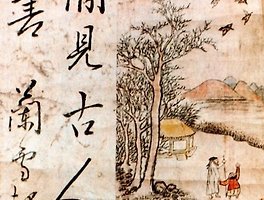 見古人
書 蘭雪